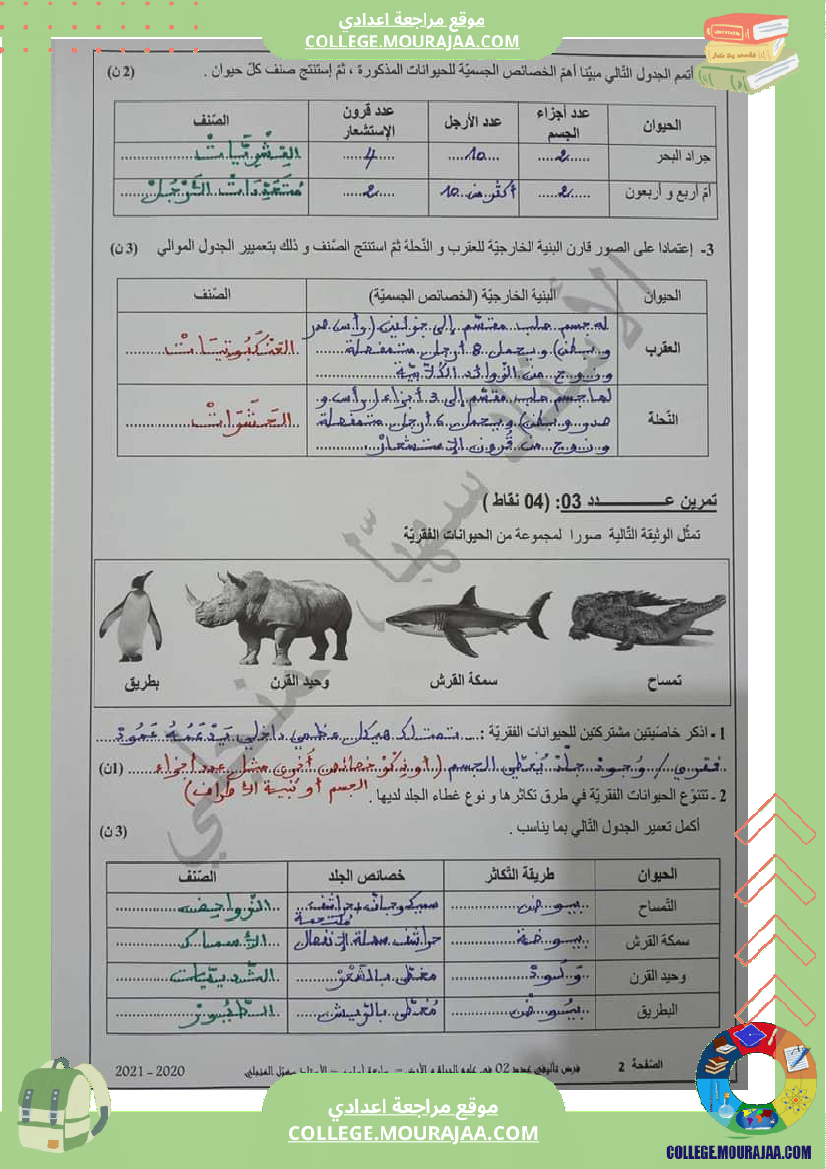 موقع مراجعة اعدادي
COLLEGE.MOURAJAA.COM
أتمم الجدول التّالي مبيّنا أهمّ الخصائص الجسميّة للحيوانات المذكورة ، ثمّ إستنتج صنف كلّ حيوان . (2 ن)
الحيوان عدد أجزاء الجسم عدد الأرجل عدد قرون الإستشعار الصّنف
جراد البحر 2 10 4 القشريّات
أمّ أربع و أربعون 2 أكثر من 10 2 متعدّدات الأرجل
3- إعتمادا على الصور قارن البنية الخارجيّة للعقرب و النّحلة ثمّ استنتج الصّنف و ذلك بتعميير الجدول الموالي (3 ن)
الحيوان البنية الخارجيّة (الخصائص الجسميّة) الصّنف
العقرب له جسم صلب مقسّم إلى جزئين (رأس صدر
و بطن) و يحمل 8 أرجل متمفصلة العنكبوتيّات
و زوج من الزّوائد الكلّابيّة
النّحلة لها جسم صلب مقسّم إلى 3 أجزاء (رأس و
صدر و بطن) و يحمل 6 أرجل متمفصلة الحشرات
و زوج من قرون الإستشعار
تمرين عـــــدد 03: (04 نقاط )
تمثّل الوثيقة التّالية صورا لمجموعة من الحيوانات الفقريّة
تمساح سمكة القرش وحيد القرن بطريق
1 - اذكر خاصّيتين مشتركتين للحيوانات الفقريّة : تمتلك هيكل عظمي داخلي يدعمه عمود
فقري / وجود جلد يغطّي الجسم (أو ذكر خصائص أخرى مثل عدد أجزاء (1ن)
الجسم أو بنية الأطراف)
2 - تتنوّع الحيوانات الفقريّة في طرق تكاثرها و نوع غطاء الجلد لديها .
أكمل تعمير الجدول التّالي بما يناسب . (3 ن)
الحيوان طريقة التّكاثر خصائص الجلد الصّنف
التّمساح بيوض حراشف ملتحمة الزّواحف
سمكة القرش بيوضة حراشف سهلة الإنفصال الأسماك
وحيد القرن ولود مغطّى بالشّعر الثّدييّات
البطريق بيوض مغطّى بالرّيش الطّيور
الصّفحة 2
2021 – 2020
موقع مراجعة اعدادي
COLLEGE.MOURAJAA.COM
COLLEGE.MOURAJAA.COM